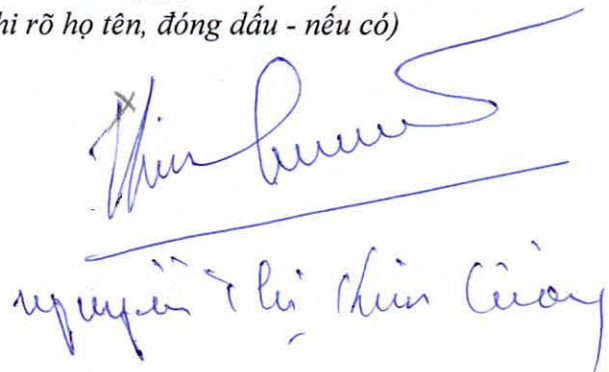 hi rõ họ tên, đóng dấu - nếu có)
Nguyễn Thị Kim Cương